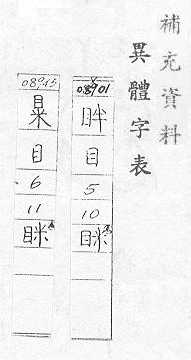 補充資料
異體字表
08901
眫
目
5
10
眯
08945
目
6
11
眯